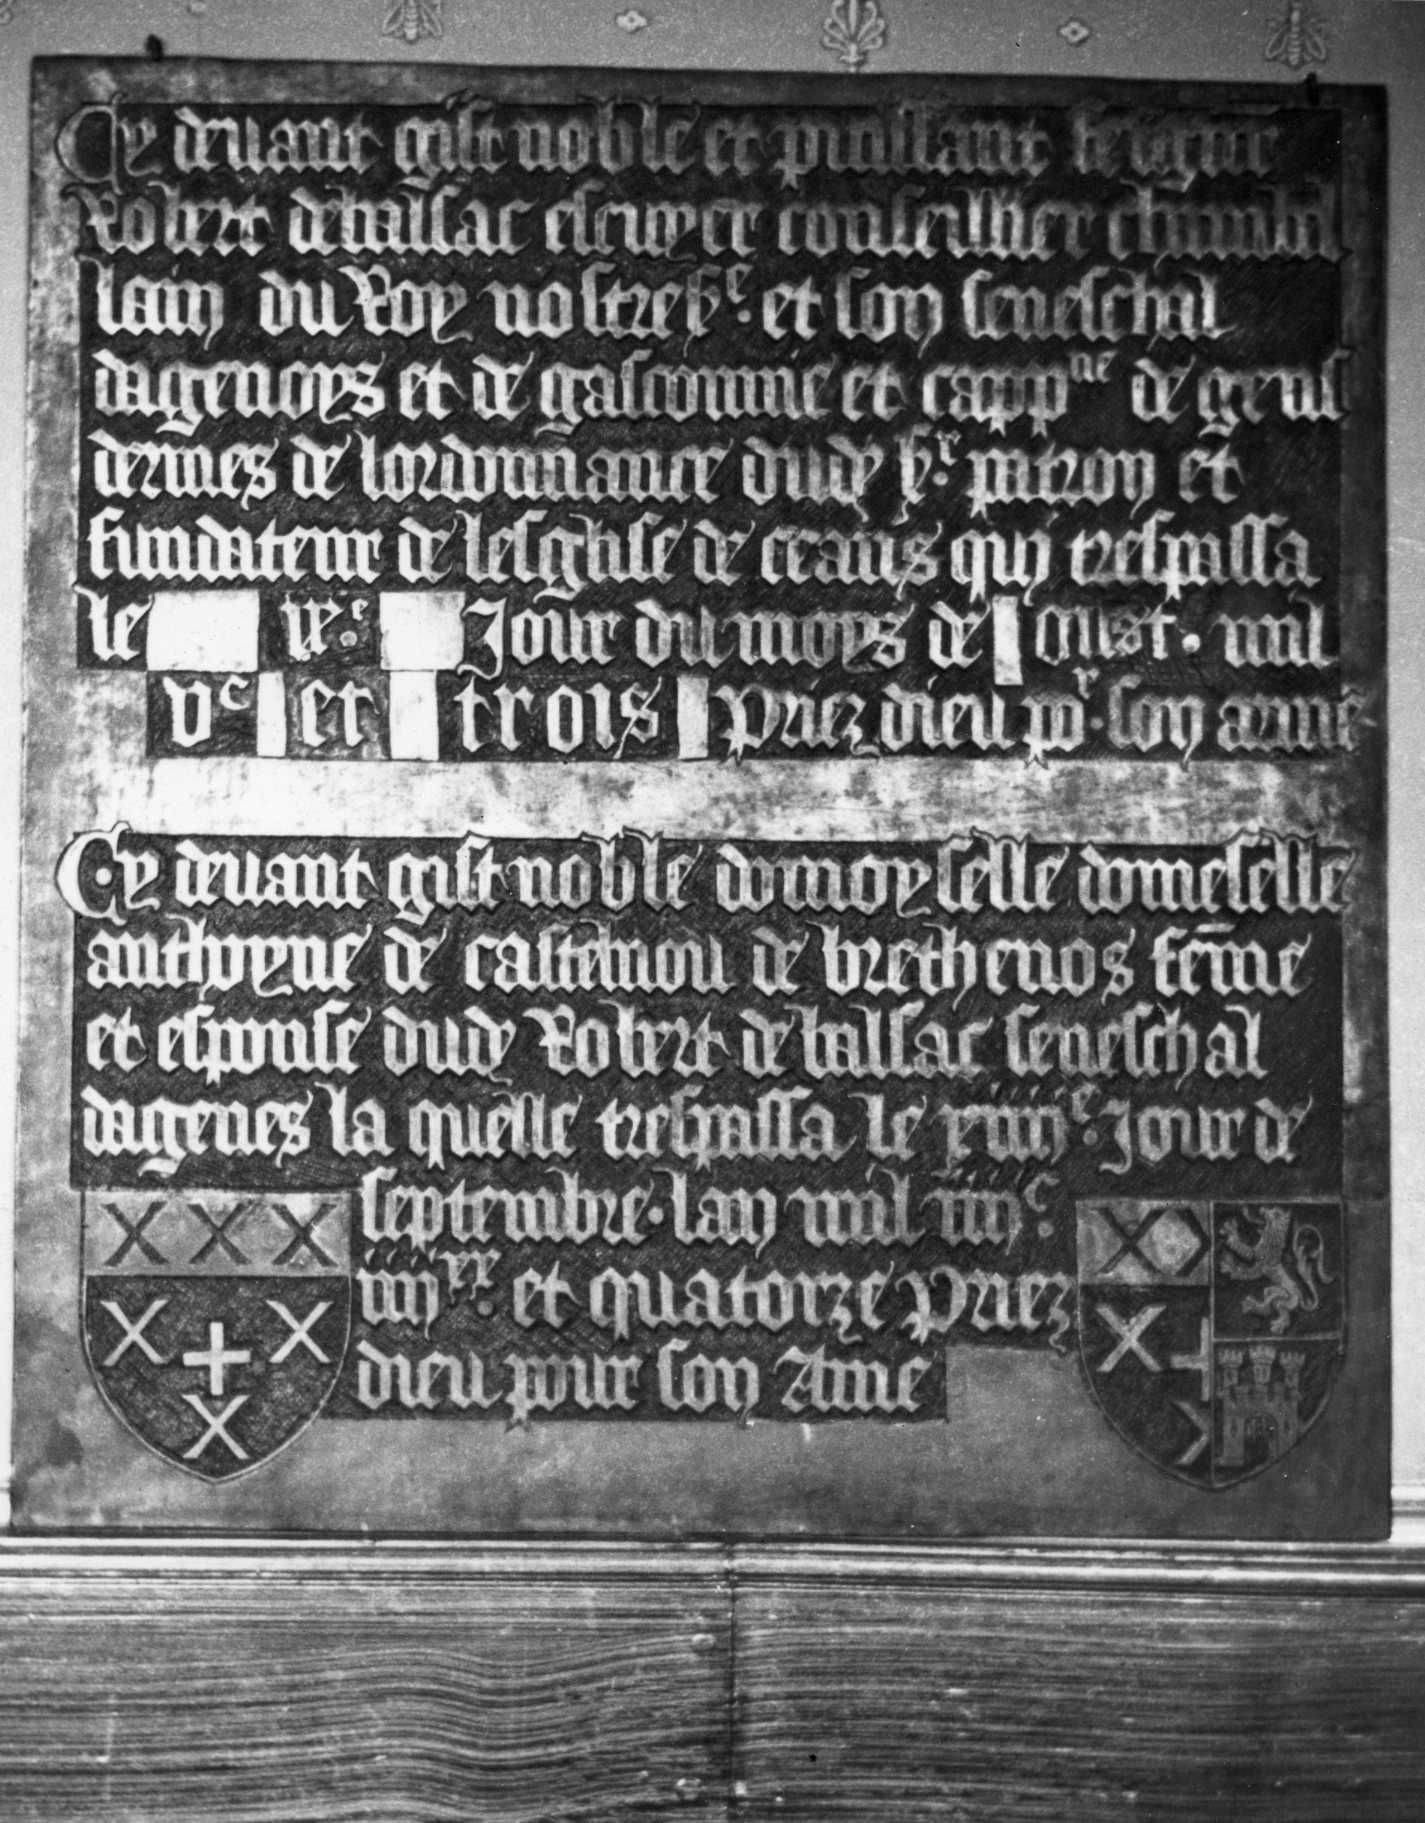 Cy devant gist noble et puissant seigneur
Robert de balssac escuyer conseillier chambel
lain du Roy nostre sr. et son seneschal
dagenoys et de gascoinnie et cappne de gens
dermes de lordonnance dudy sr. patron et
fundateur de lesglise de ceans quy trespassa
le ixe. Jour du moys de oust. mil
vc et trois Priez dieu por. son amme
Cy devant gist noble domoyselle domeselle
anthoyne de castelnou de brethenos feme
et espouse dudy Robert de balssac seneschal
dagenes la quelle trespassa le xiiiie. Jour de
septembre. lan mil iiiic.
iiiixx. et quatorze Priez
dieu pour son Ame